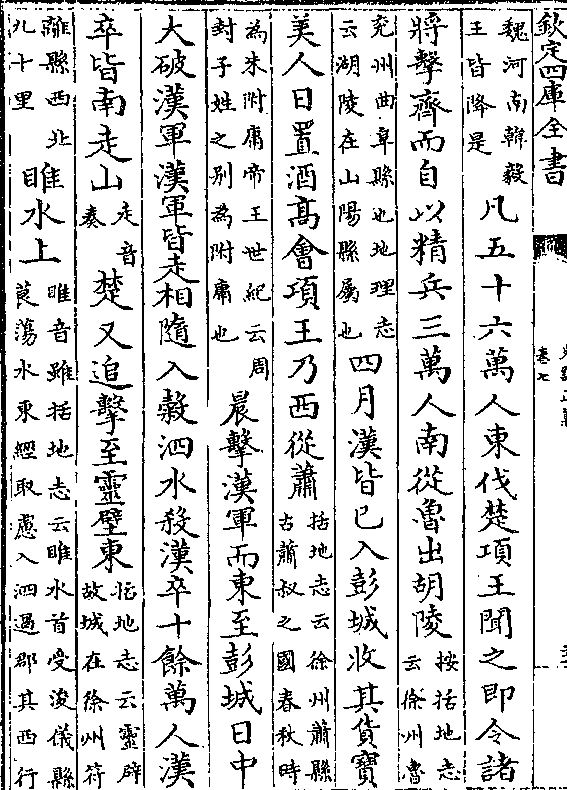 欽定四庫全書
卷七
魏河南韓毅
王皆降是
凡五十六萬人東伐楚項王聞之即令諸
將擊齊而自以精兵三萬人南從魯出胡陵
按括地志
云徐州魯
兖州曲阜縣也地理志
云湖陵在山陽縣屬也
四月漢皆已入彭城收其貨寳
美人日置酒髙會項王乃西從蕭
括地志云徐州蕭縣
古蕭叔之國春秋時
為朱附庸帝王世紀云周
封子姓之别為附庸也
晨擊漢軍而東至彭城日中
大破漢軍漢軍皆走相隨入榖泗水殺漢卒十餘萬人漢
卒皆南走山
走音
奏
楚又追擊至靈壁東
括地志云靈辟
故城在徐州符
離縣西北
九十里
睢水上
睢音雖括地志云睢水首受浚儀縣
莨蕩水東經取慮入泗過郡其西行